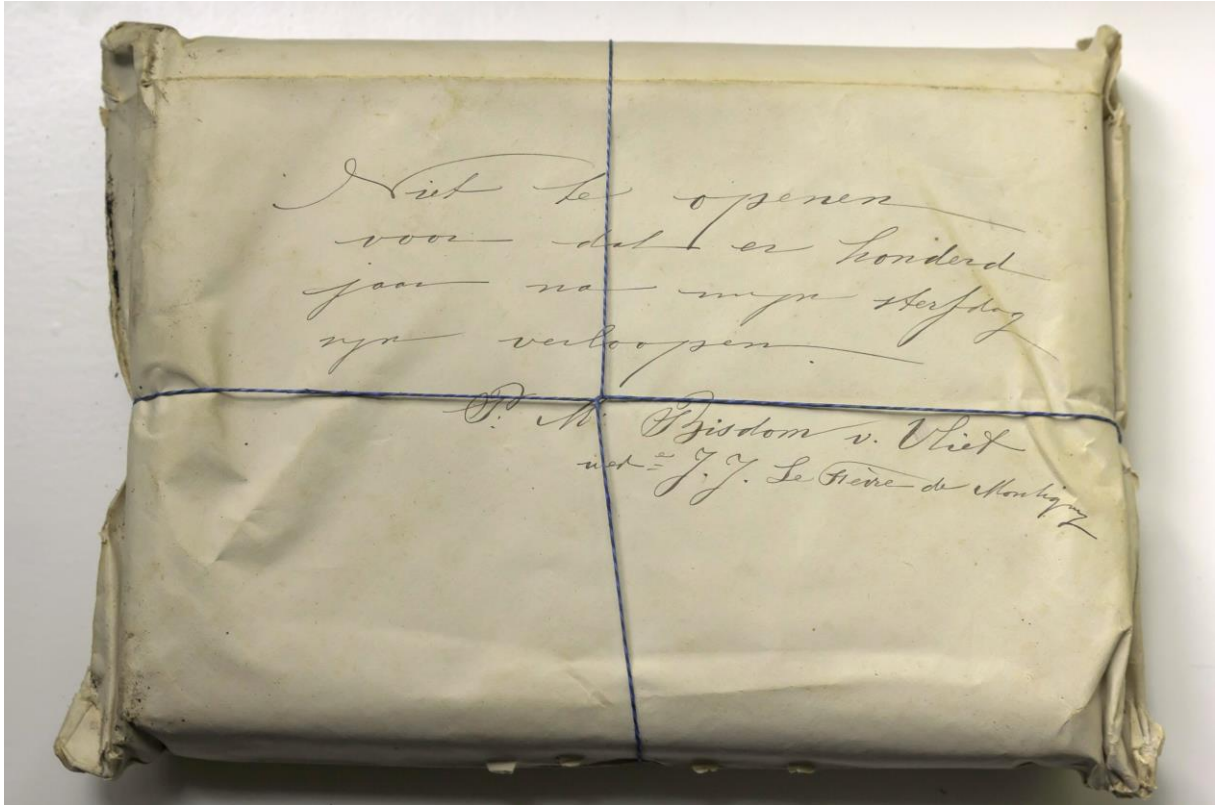 Niet te openen
voor dat er honderd
jaar na mijn sterfdag
zijn verloopen.
P. M. Bisdom v. Vliet
wed e J. J. Le Fèvre de Montigny